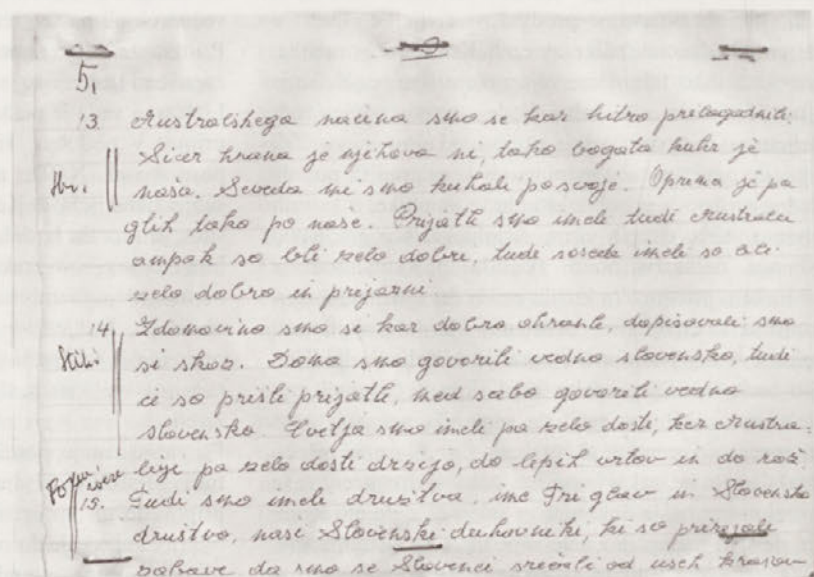 5.
13. Australskega nacina smo se kar hitro prilagodnili.
Sicer hrana je njihova ni, tako bogata kuhr je
Hr. naša. Seveda mi smo kuhali po svoje. Oprema je pa
glih tako po nase. Prijatle smo imele tudi Australce
ampak so bli zelo dobri, tudi sosede imeli so bli
zelo dobro in prijazni.
14. Zdomovino smo si kar dobro ohranle, dopisovali smo
Stik. si skoz. Doma smo govorili vedno slovensko, tudi
ci so prisli prijatli, med sabo govorili vedno
slovensko. Cvetja smo imeli pa zelo dosti, ker Austra-
lije pa zelo dosti drzijo, do lepih vrtov in do rož
15. Tudi smo imele drustva, ime Triglav in Slovensko
drustvo, nasi Slovenski duhovniki, ki so prirejali
zabave da smo se Slovenci srečali od useh krajov